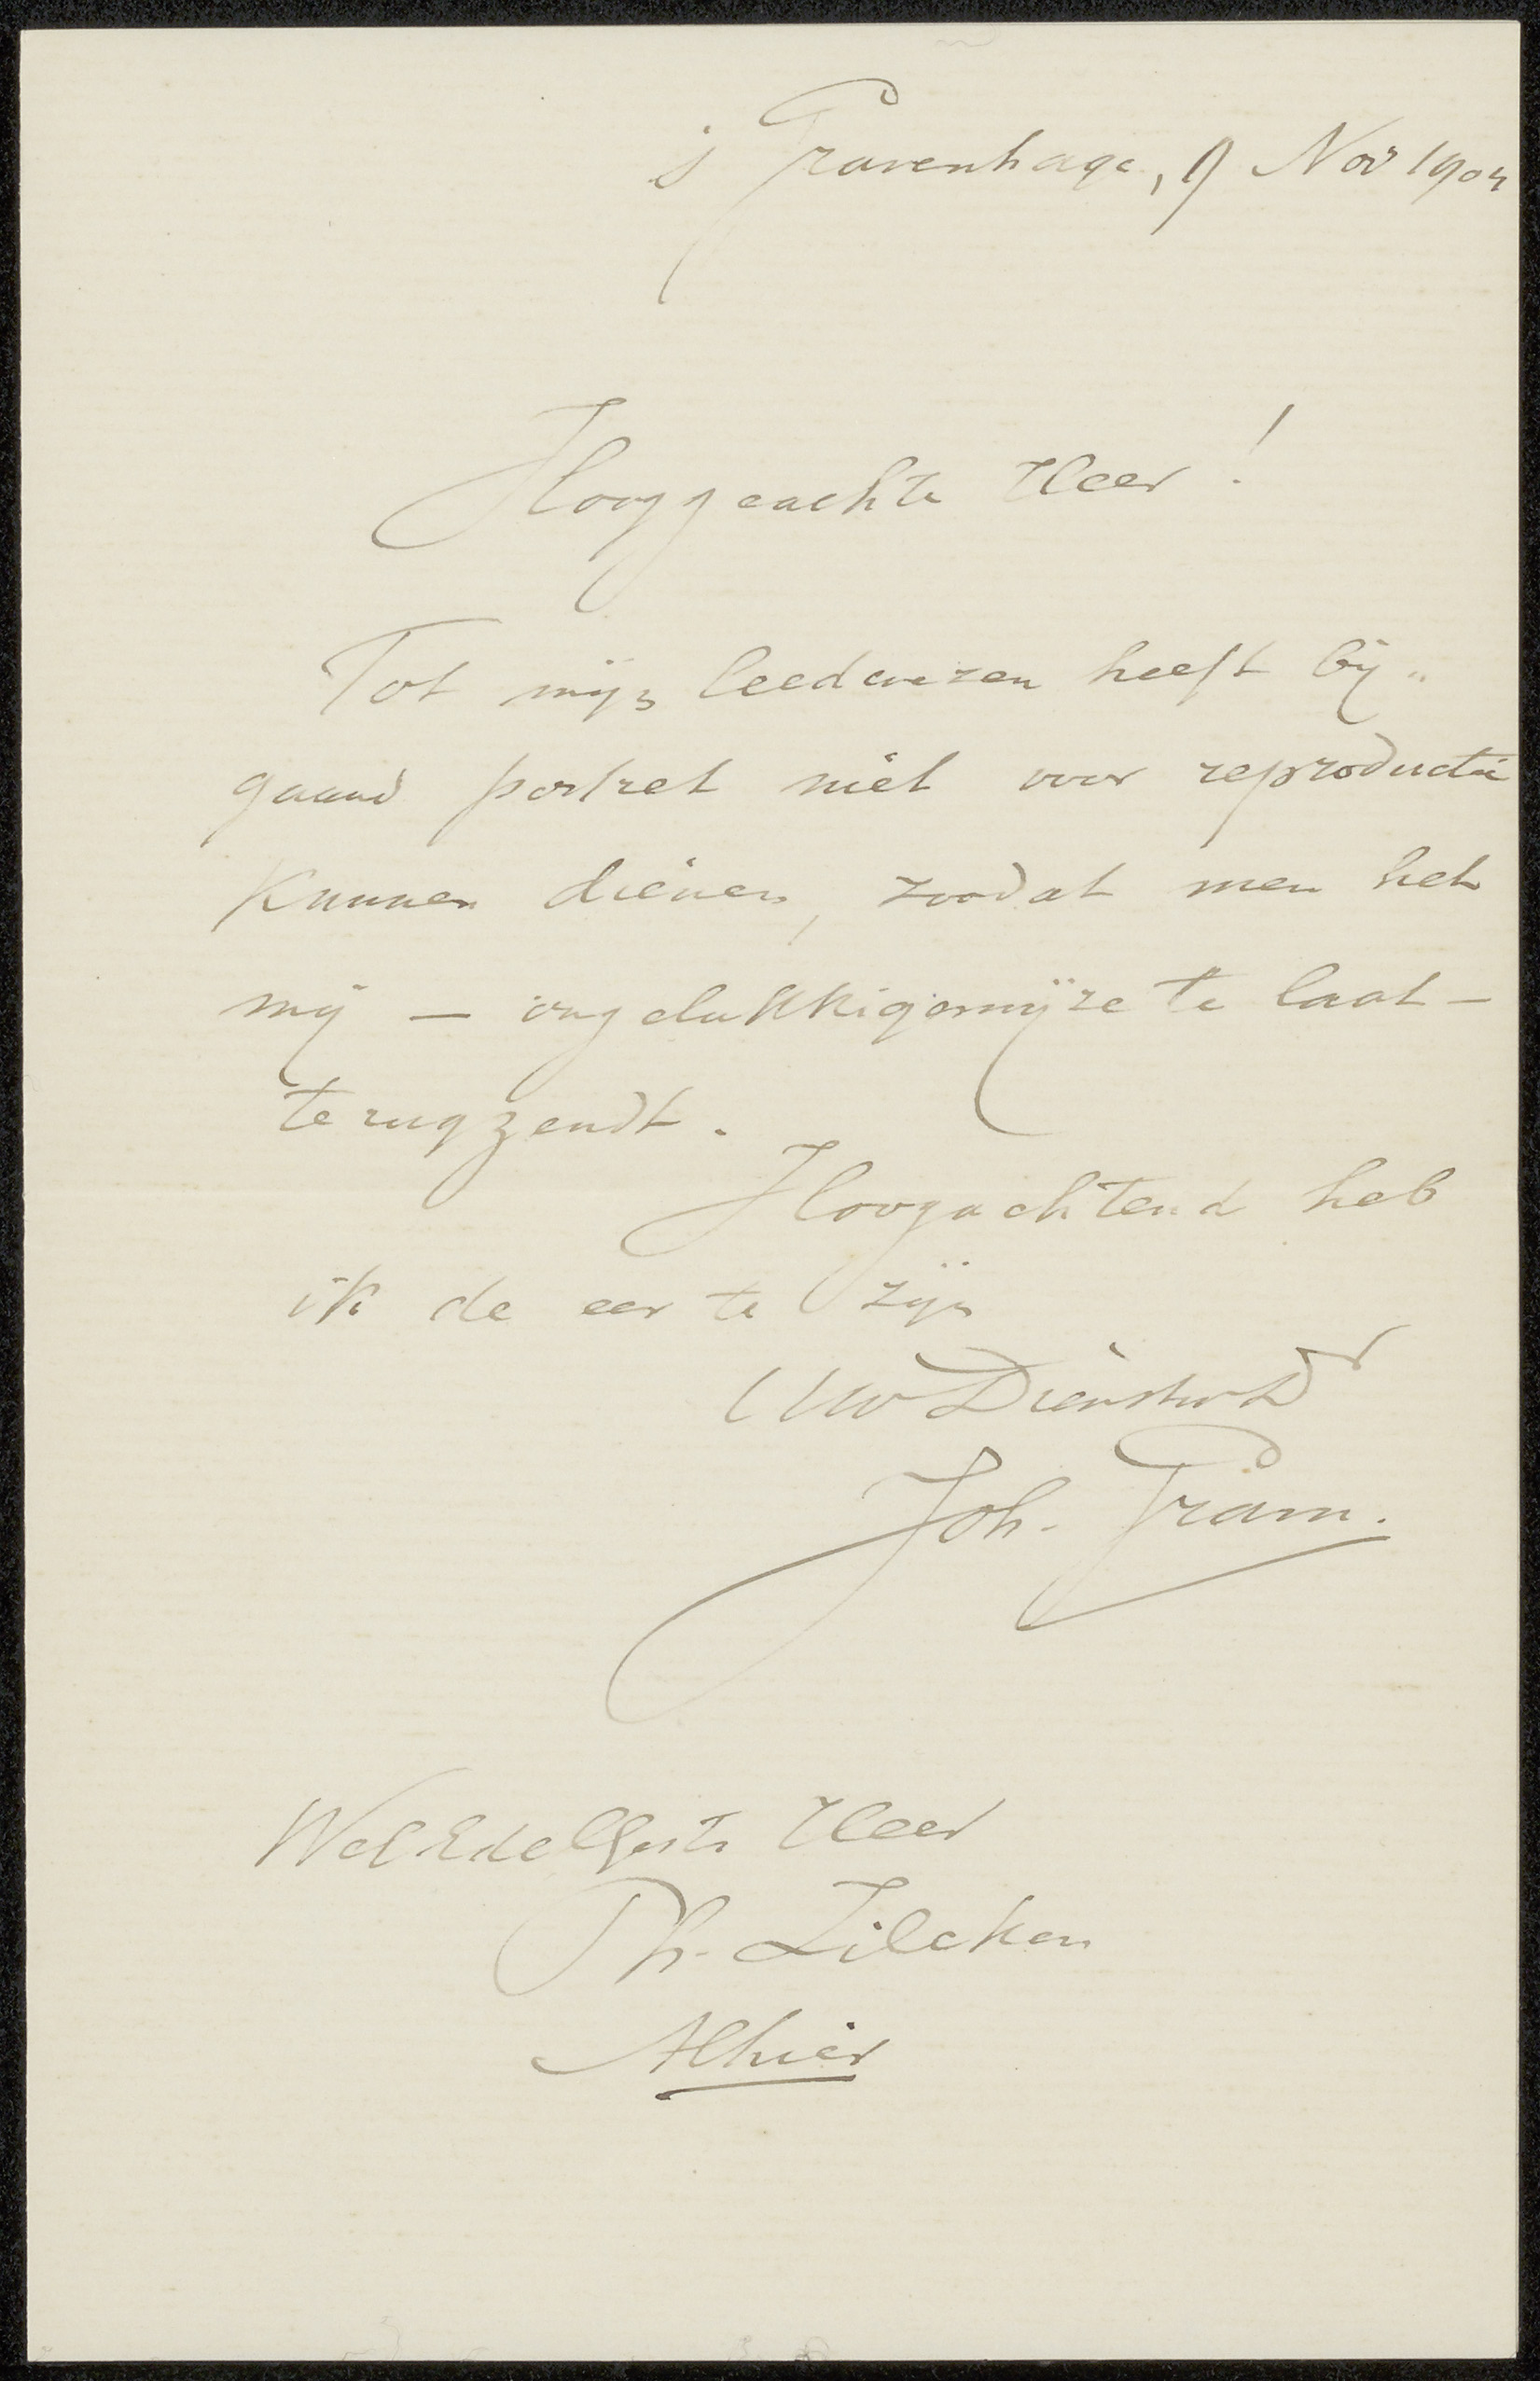 's Gravenhage, 9 Nov 1904
Hooggeachte Heer!
Tot mijn leedwezen heeft bij„
gaand portret niet voor reproductie
kunnen dienen, zoodat men het
mij — ongelukkigerwijze te laat —
terugzendt.
Hoogachtend heb
ik de eer te zijn
Uw Dienstw Dr
Joh. Gram.
WelEdelGeb Heer
Ph. Zilcken
Alhier